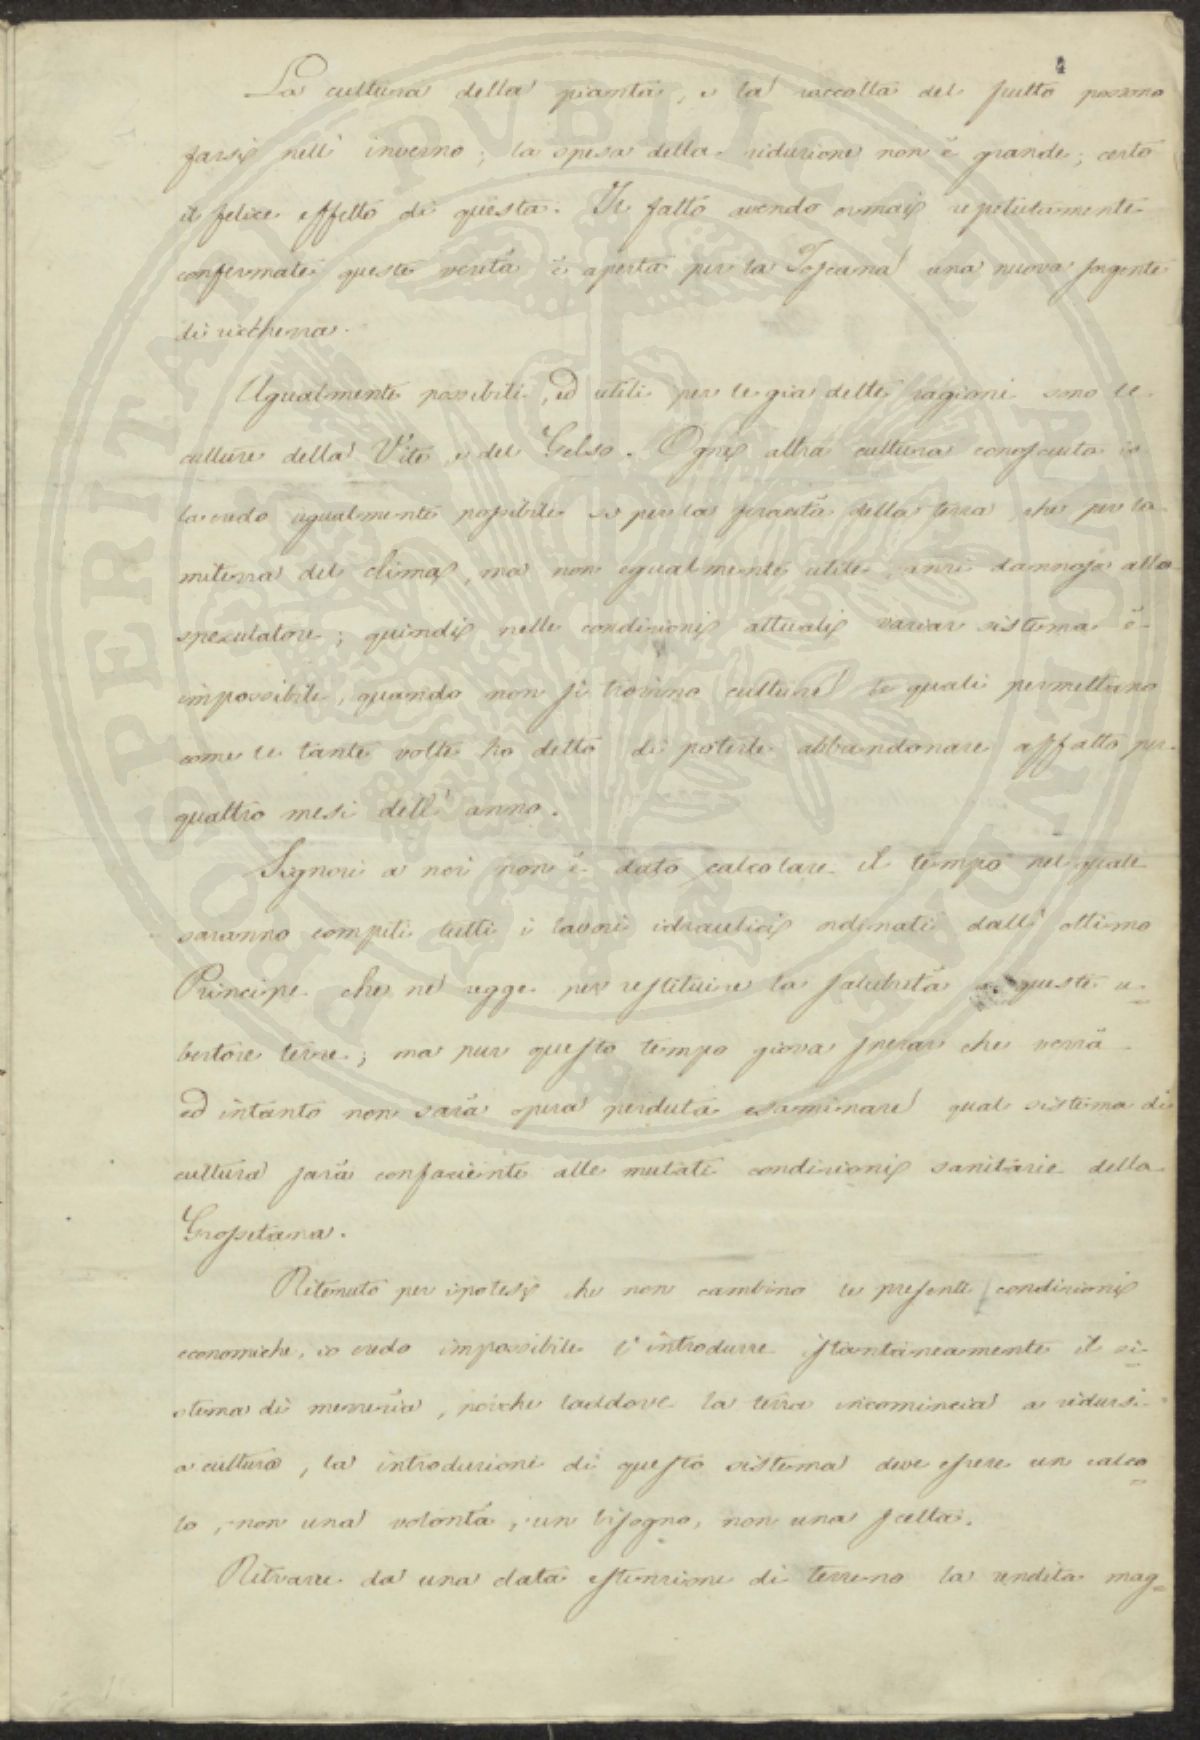 4
La cultura della pianta, e la raccolta del frutto possono
farsi nell' inverno; la spesa della riduzione non è grande; certo
il felice effetto di questa. Il fatto avendo ormai repetutamente
confermate queste verità è aperta per la Toscana una nuova sorgente
di ricchezza.
Ugualmente possibili, ed utili per le già dette ragioni sono le
culture della Vite, e del Gelso. Ogni altra cultura conosciuta io
la credo ugualmente possibile sì per la feracità della terra che per la
mitezza del clima, ma non egualmente utile, anzi dannosa allo
speculatore; quindi nelle condizioni attuali variar sistema è
impossibile, quando non si trovino culture le quali permettano
come le tante volte ho detto di poterle abbandonare affatto per
quattro mesi dell' anno.
Signori a noi non è dato calcolare il tempo nel quale
saranno compiti tutti i lavori idraulici ordinati dall' ottimo
Principe che ne regge per restituire la salubrità a queste u=
bertose terre; ma pur questo tempo giova sperar che verrà
ed intanto non sarà opera perduta esaminare qual sistema di
cultura sarà confaciente alle mutate condizioni sanitarie della
Grossetana.
Ritenuto per ipotesi che non cambino le presenti condizioni
economiche, io credo impossibile l' introdurre istantaneamente il si=
stema di mezzeria, poichè laddove la terra incomincia a ridursi
a cultura, la introduzione di questo sistema deve essere un calco=
lo, non una volontà, un bisogno, non una scelta.
Ritrarre da una data estenzione di terreno la rendita mag=
PROSPERITATI PVBLICAE AVGENDAE